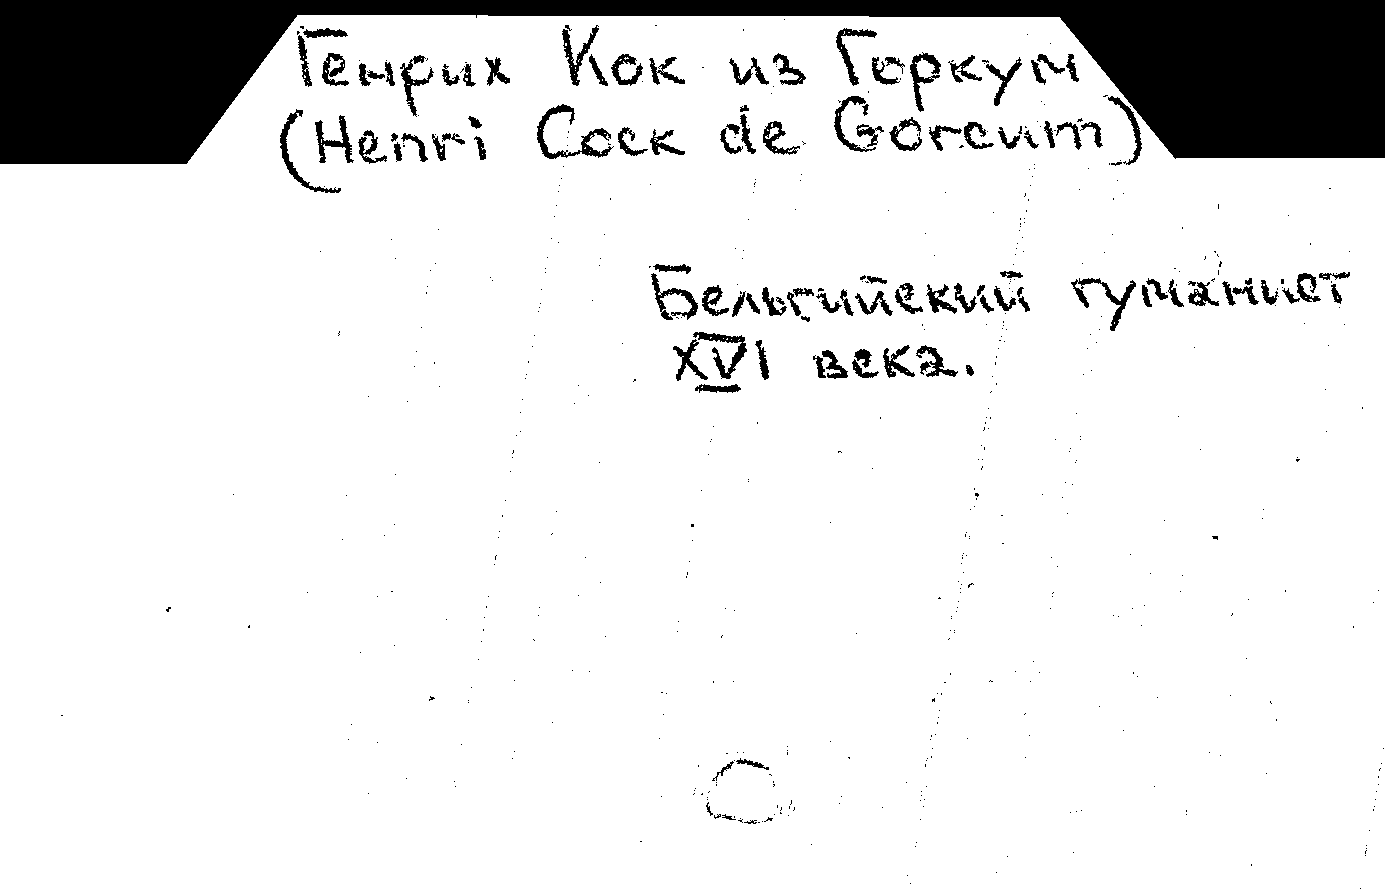 Генрих Кок из Горкум
(Henri Cock de Gorcum)
Бельгийский гуманист
XVI века.